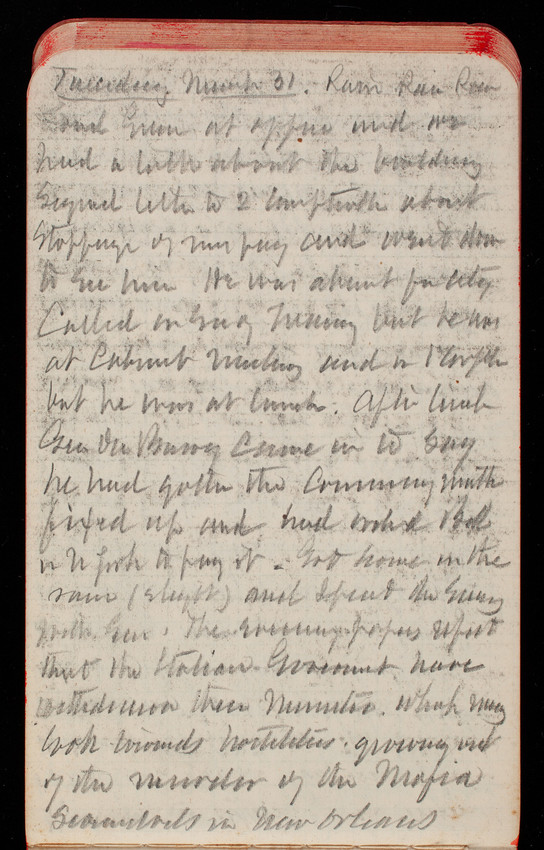 Tuesday March 31. Rain Rain Rain
Genl at office and we
had a talk about the building
Signed letter to 2 Comptroller about
Stoppage of my pay and went down
to see him He was absent
Called on Secy Treasury but he was
at Cabinet Meeting and on 1 Compt
but he was at lunch. After lunch
Gen came in to say
he had gotten the Commissary
fixed up and had ordered
in N York to pay it - Got home in the
rain (slight) and spent the Evening
with Gen. The evening papers report
that the Italian Government have
withdrawn their Minister. which may
look towards hostilities. growing out
of the murder of the Mafia
Scoundrels in New Orleans